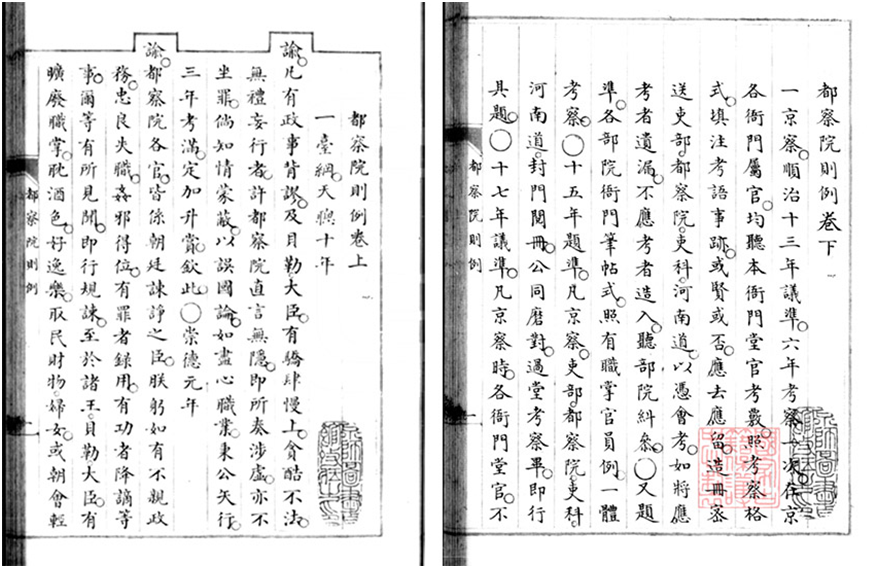 都察院則例卷上
一臺綱。天聰十年
諭。凡有政事背謬。及貝勒大臣。有驕肆慢上。貪酷不法。
無禮妄行者。許都察院直言無隱。即所奏涉虛。亦不
坐罪。倘知情蒙蔽。以誤國論。如盡心職業。秉公矢行。
三年考滿。定加升賞。欽此。○崇德元年
諭。都察院各官。皆係朝廷諫諍之臣。朕躬如有不親政
務。忠良失職。姦邪得位。有罪者錄用。有功者降謫等
事。爾等有所見聞。即行規諫。至於諸王。貝勒大臣。有
曠廢職掌。耽酒色。好逸樂。取民財物。婦女。或朝會輕
都察院則例
一
都察院則例卷下
一京察。順治十三年議準。六年考察一次。在京
各衙門屬官。均聽本衙門堂官考覈。照考察格
式。填注考語事跡。或賢或否。應去應留。造冊密
送吏部。都察院。吏科。河南道。以憑會考。如將應
考者遺漏。不應考者造入。聽部院糾參。○又題
準。各部院衙門筆帖式。照有職掌官員例。一體
考察。○十五年題準。凡京察。吏部。都察院。吏科。
河南道。封門閱冊。公同磨對。過堂考察畢。即行
具題。○十七年議準。凡京察時。各衙門堂官。不
都察院則例
一